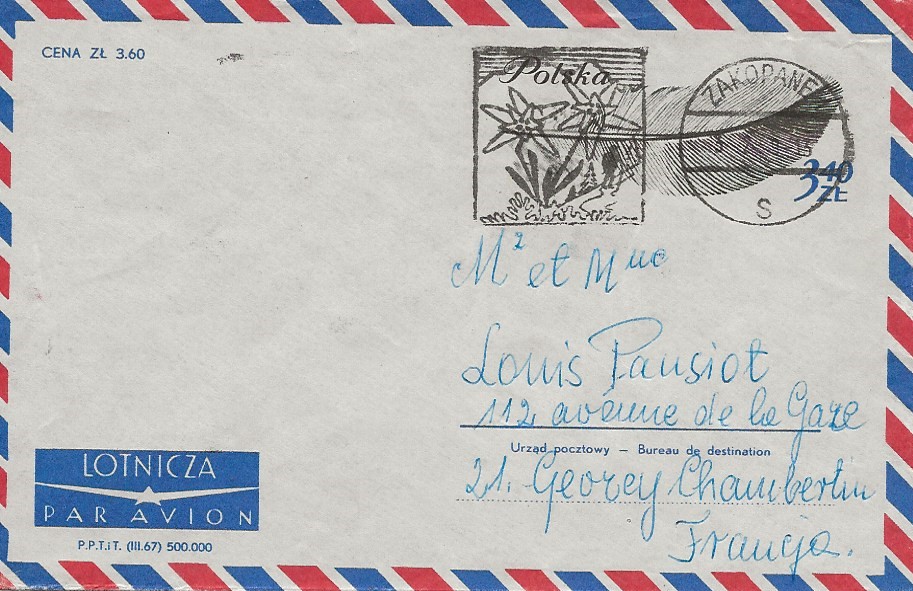 CENA ZŁ 3.60
Polska
ZAKOPANE
S
3 40 ZŁ
Mr et Mme
Louis Pansiot
112 avénue de la Gare
Urząd pocztowy — Bureau de destination
21. Georey Chambertin
Francja.
LOTNICZA
PAR AVION
P.P.T.iT. (III.67) 500.000